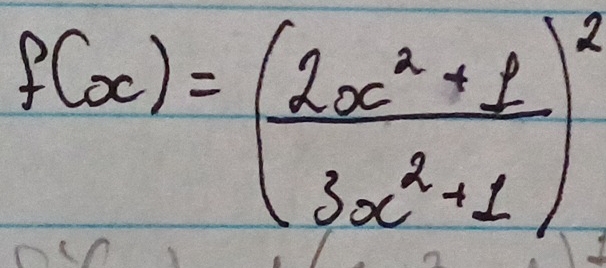 f(x) = (2x² + 1 / 3x² + 1)²